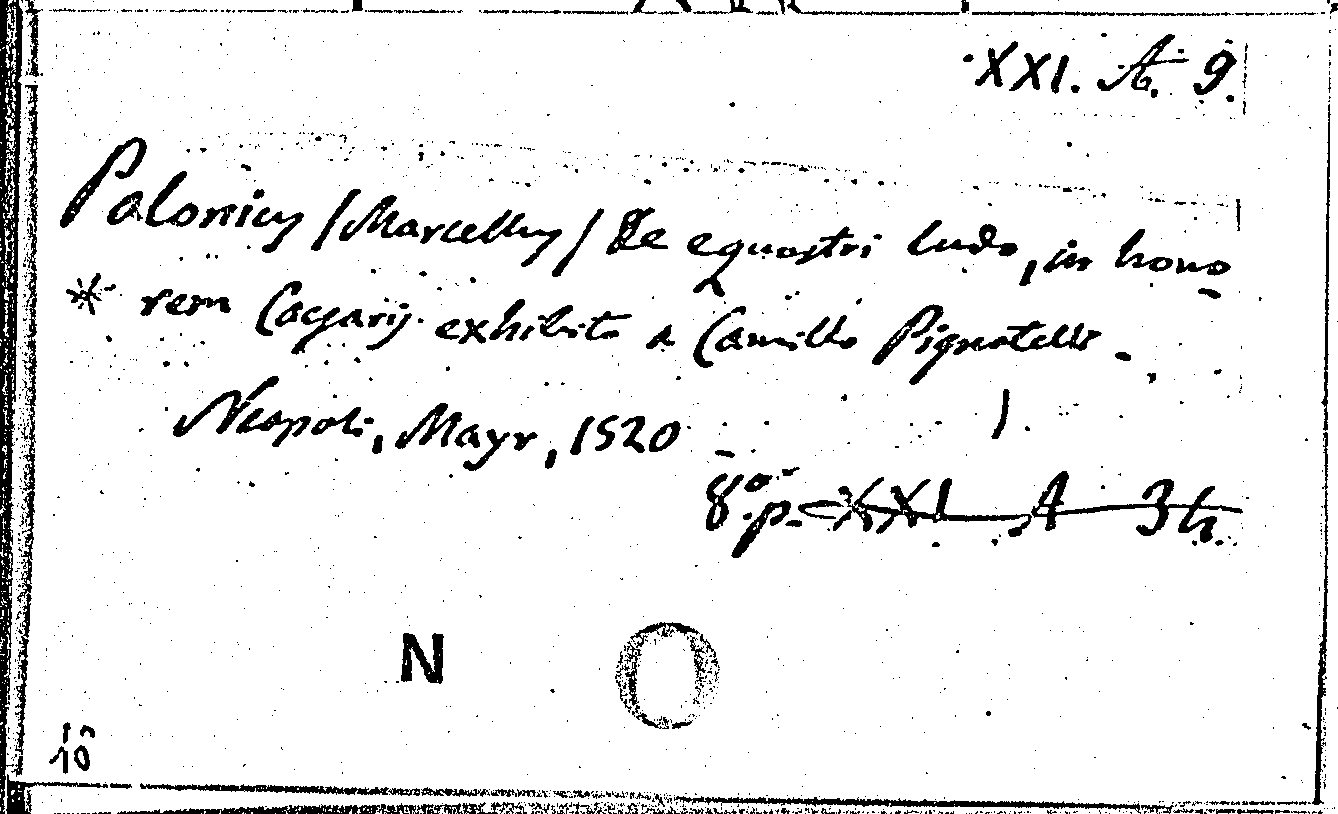 XXI. A. 9.
Palonius / Marcellus / De equestri ludo, in hono-
* rem Caesaris exhibito a Camillo Pignatello -
Neapoli, Mayr, 1520
8º p. XXI A 34.
N O
10